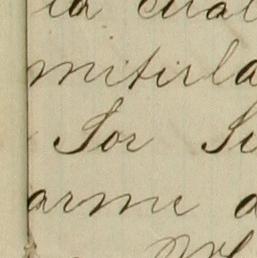 la cual
mitirla
Sor Su
arme a